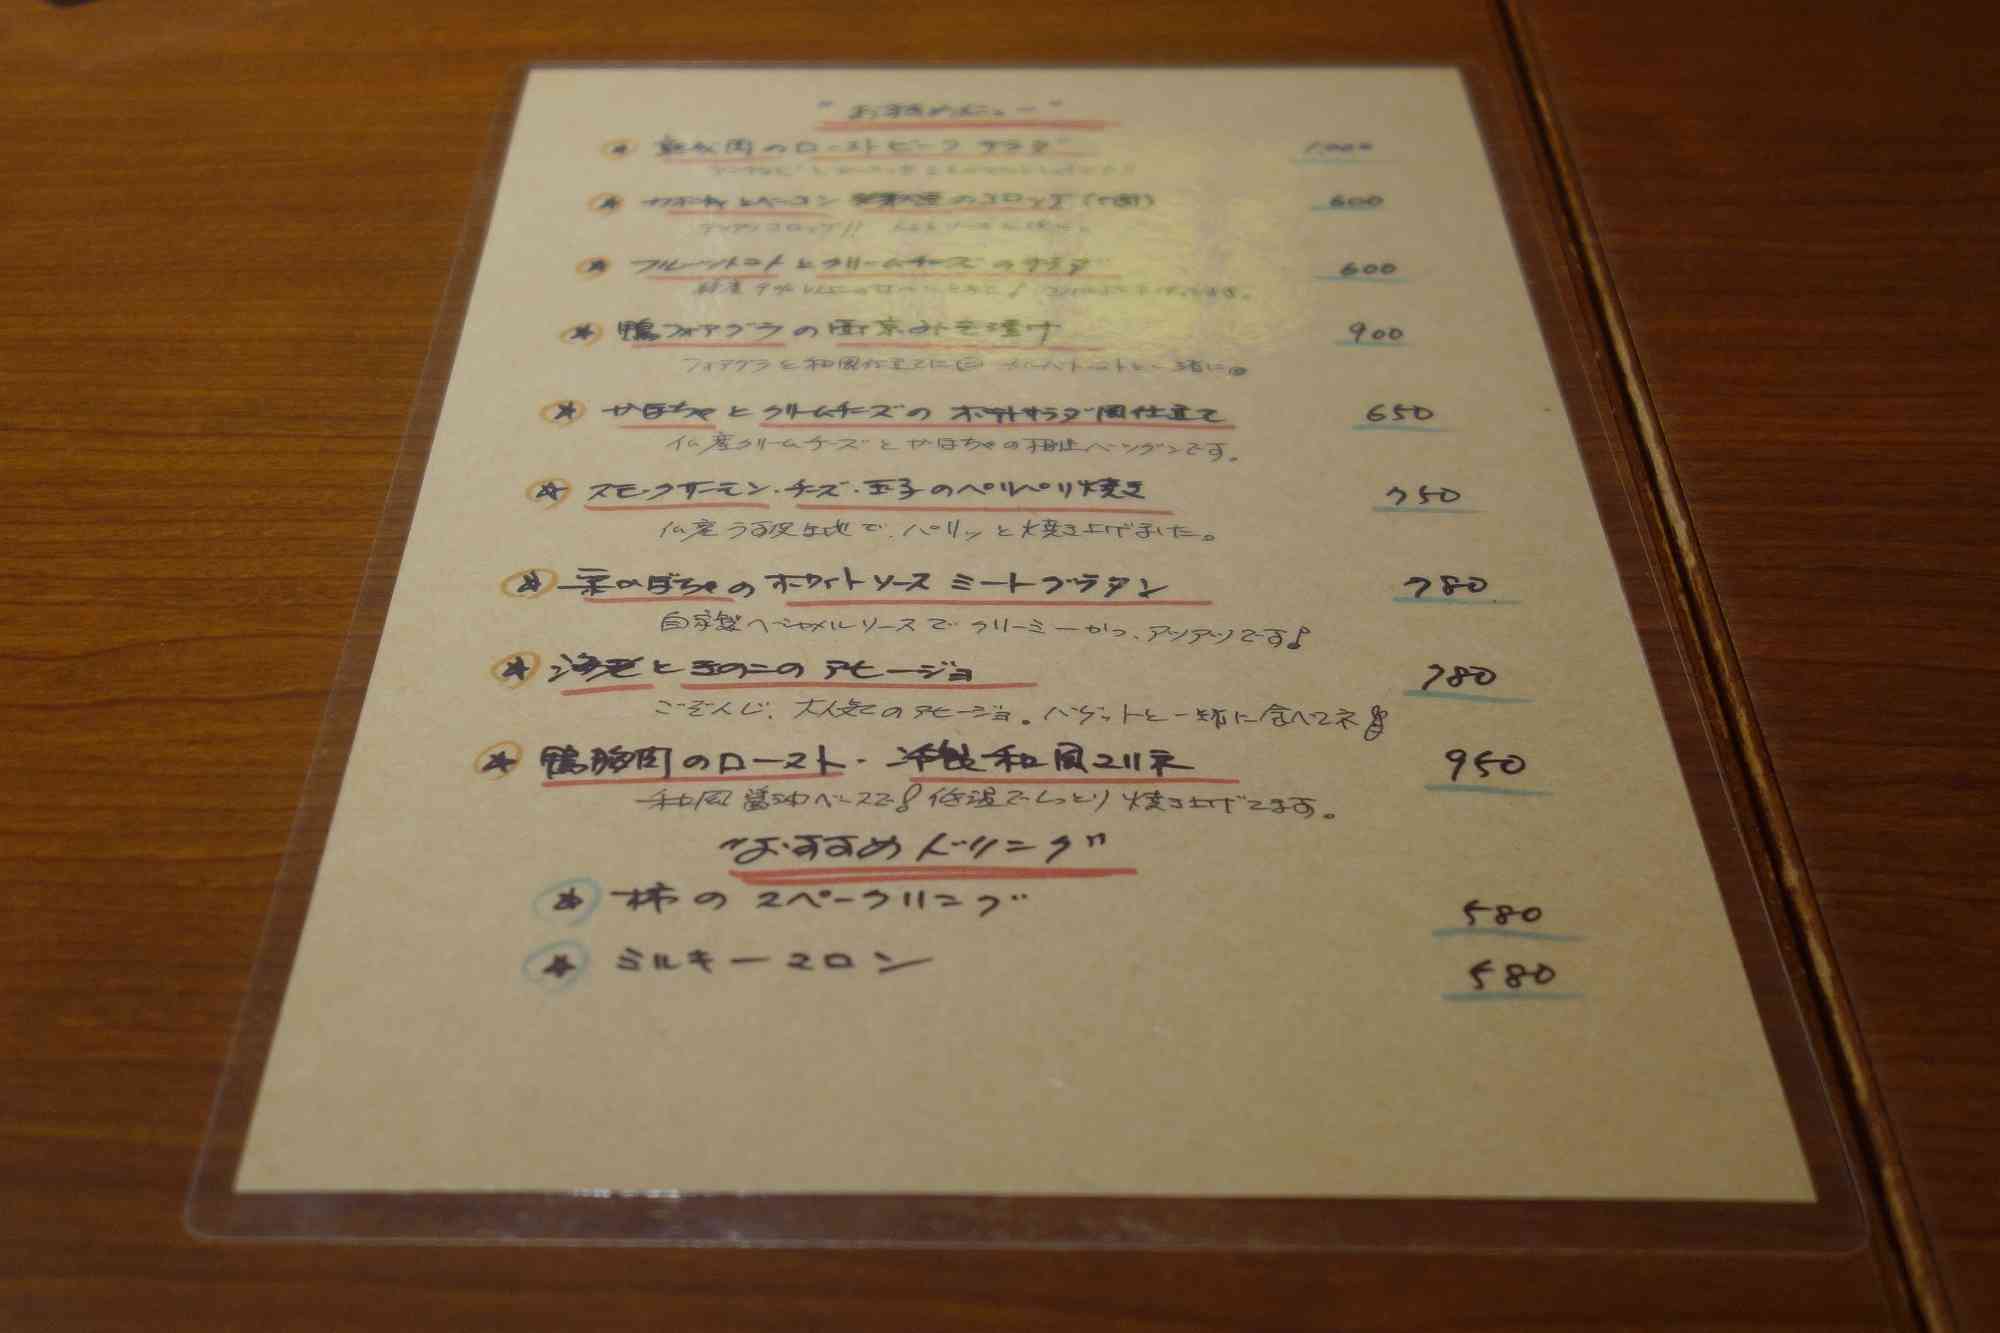 "おすすめメニュー"
★ 熟成肉のローストビーフ サラダ 1,000
★ カボチャとベーコン のコロッケ 600
トマトソース
★ フルーツトマトとクリームチーズのサラダ 600
★ 鴨フォアグラの西京みそ漬け 900
フォアグラを和風仕立てに メルバトーストと一緒に
★ かぼちゃとクリームチーズの ポテトサラダ風仕立て 650
仏産クリームチーズとかぼちゃの相性バツグンです。
★ スモークサーモン・チーズ・玉子のパリパリ焼き 750
仏産うす皮生地で、パリッと焼き上げました。
★ 栗かぼちゃのホワイトソース ミートグラタン 780
自家製ベシャメルソースでクリーミーかつ、アツアツです♪
★ 海老ときのこのアヒージョ 780
ごぞんじ、大人気のアヒージョ。バゲットと一緒に食べてネ
★ 鴨胸肉のロースト・冷製和風マリネ 950
和風醤油ベースで! 低温でしっとり焼き上げてます。
"おすすめドリンク"
★ 柿のスパークリング 580
★ ミルキーマロン 580